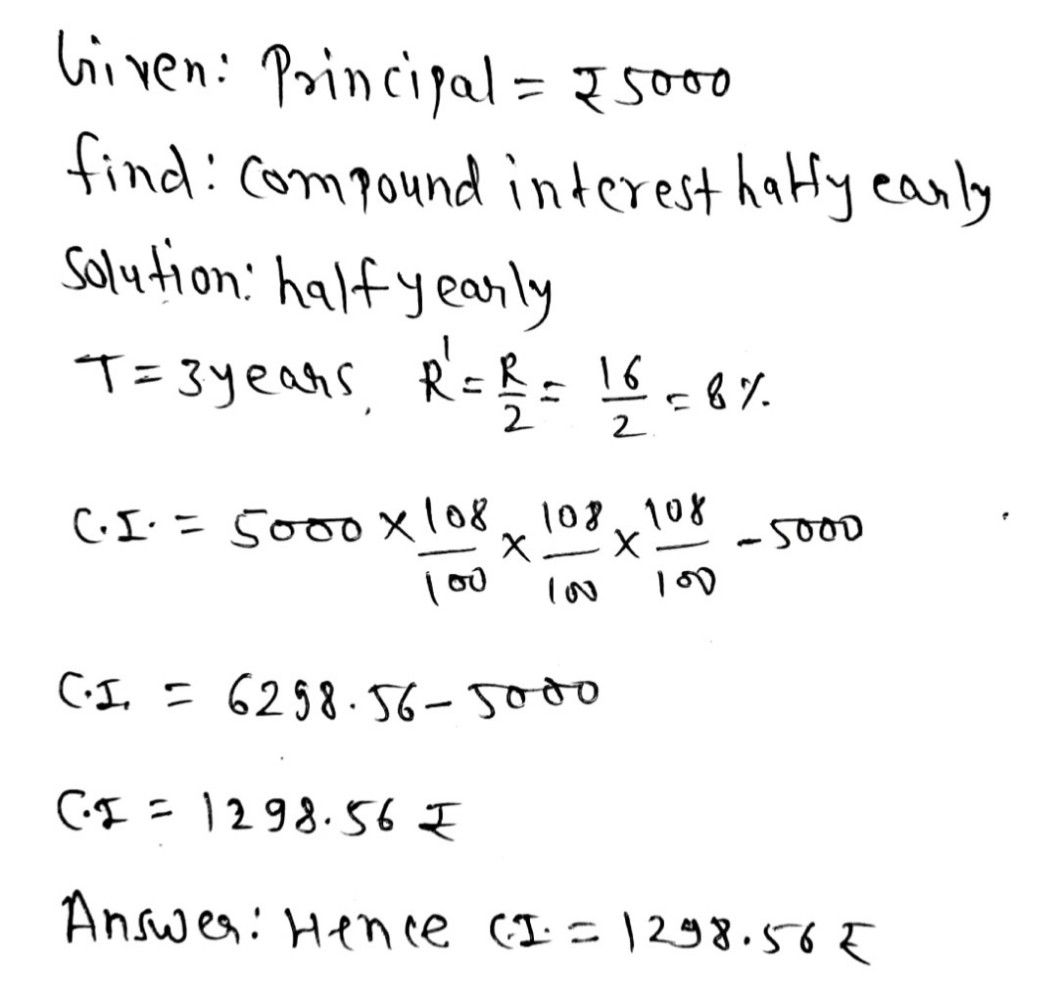 Given: Principal = ₹5000
find: Compound interest halfyearly
Solution: half yearly
T = 3years, R' = R/2 = 16/2 = 8%
C.I. = 5000 × 108/100 × 108/100 × 108/100 - 5000
C.I. = 6298.56 - 5000
C.I = 1298.56 ₹
Answer: Hence C.I. = 1298.56 ₹